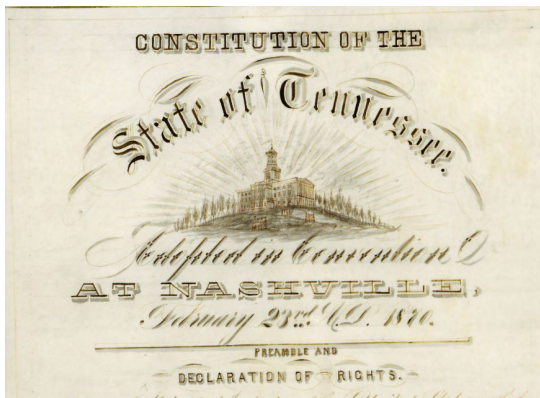 CONSTITUTION OF THE
State of Tennessee.
Adopted in Convention
AT NASHVILLE,
February 23rd A.D. 1870.
PREAMBLE AND
DECLARATION OF RIGHTS.